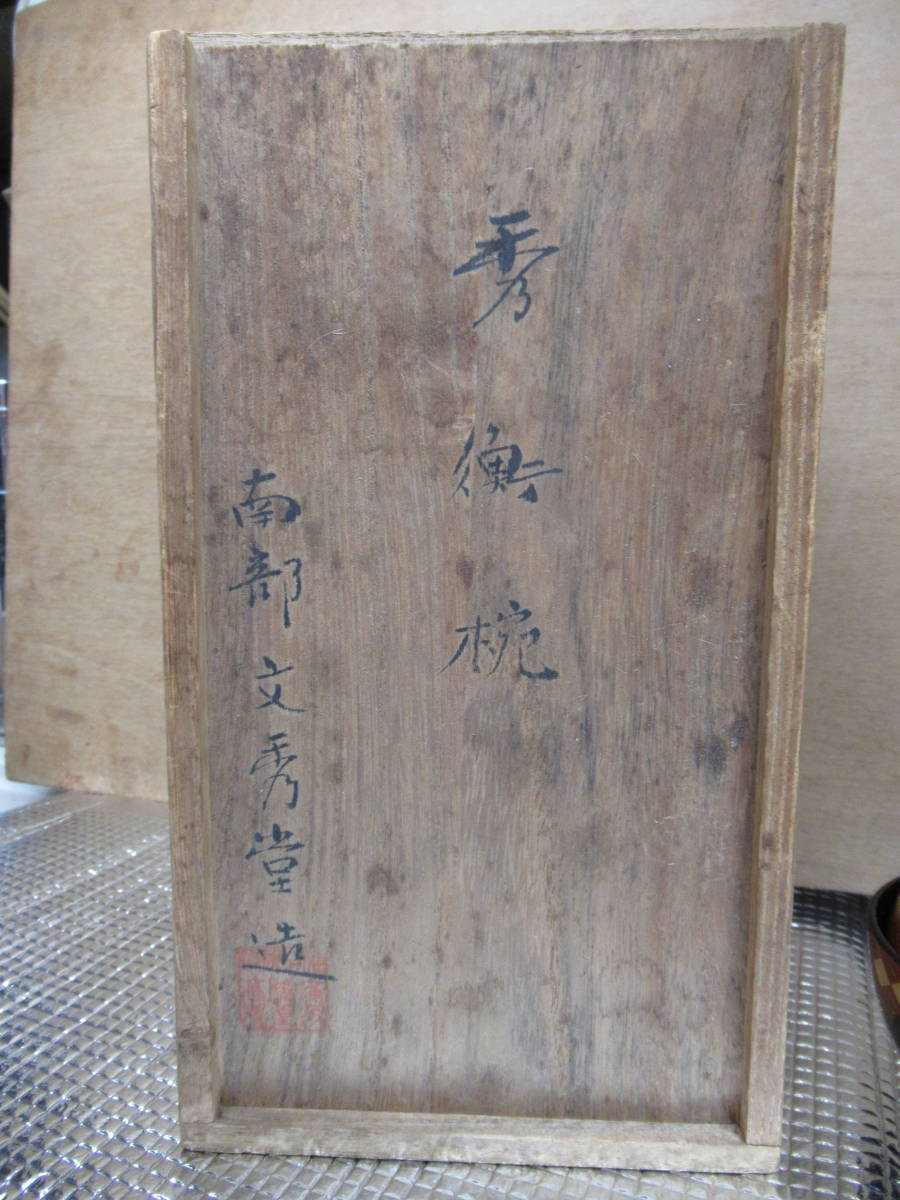 秀衡椀
南部文秀堂造